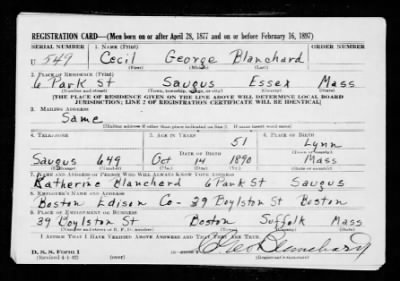 REGISTRATION CARD—(Men born on or after April 28, 1877 and on or before February 16, 1897)
SERIAL NUMBER 1. NAME (Print) ORDER NUMBER
U 549 Cecil George Blanchard
(First) (Middle) (Last)
2. PLACE OF RESIDENCE (Print)
6 Park St Saugus Essex Mass
(Number and street) (Town, township, village, or city) (County) (State)
[THE PLACE OF RESIDENCE GIVEN ON THE LINE ABOVE WILL DETERMINE LOCAL BOARD
JURISDICTION; LINE 2 OF REGISTRATION CERTIFICATE WILL BE IDENTICAL]
3. MAILING ADDRESS
Same
(Mailing address if other than place indicated on line 2. If same insert word same)
4. TELEPHONE 5. AGE IN YEARS 6. PLACE OF BIRTH
51 Lynn
DATE OF BIRTH
Saugus 649 Oct 14 1890 Mass
7. NAME AND ADDRESS OF PERSON WHO WILL ALWAYS KNOW YOUR ADDRESS
Katherine Blanchard 6 Park St Saugus
8. EMPLOYER'S NAME AND ADDRESS
Boston Edison Co - 39 Boylston St Boston
9. PLACE OF EMPLOYMENT OR BUSINESS
39 Boylston St Boston Suffolk Mass
(Number and street or R. F. D. number) (Town) (County) (State)
I AFFIRM THAT I HAVE VERIFIED ABOVE ANSWERS AND THAT THEY ARE TRUE.
D. S. S. Form 1
(Revised 4-1-42) (over) Blanchard
(Registrant's signature)